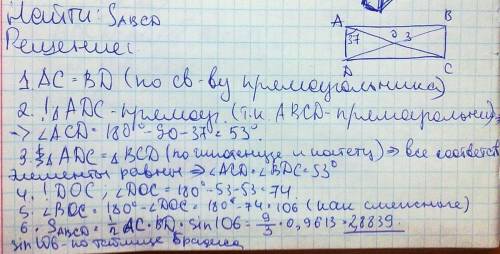 Найти: SABCD
Решение:
A B
37 O 3
D C
1. AC = BD (по св-ву прямоугольника)
2. !△ADC - прямоуг. (т.к ABCD - прямоугольник) =>
-> ∠ACD = 180° - 90 - 37 = 53°.
3. △ADC = △BCD (по гипотенузе и катету) => все соответств
элементы равны => ∠ACD = ∠BDC = 53°
4. !DOC; ∠DOC = 180° - 53 - 53 = 74.
5. ∠BOC = 180° - ∠DOC = 180° - 74 = 106 (как смежные)
6. SABCD = 1/2 AC · BD · sin106 = 9/3 · 0,9613 = 2,8839.
sin 106 - по таблице Брадиса